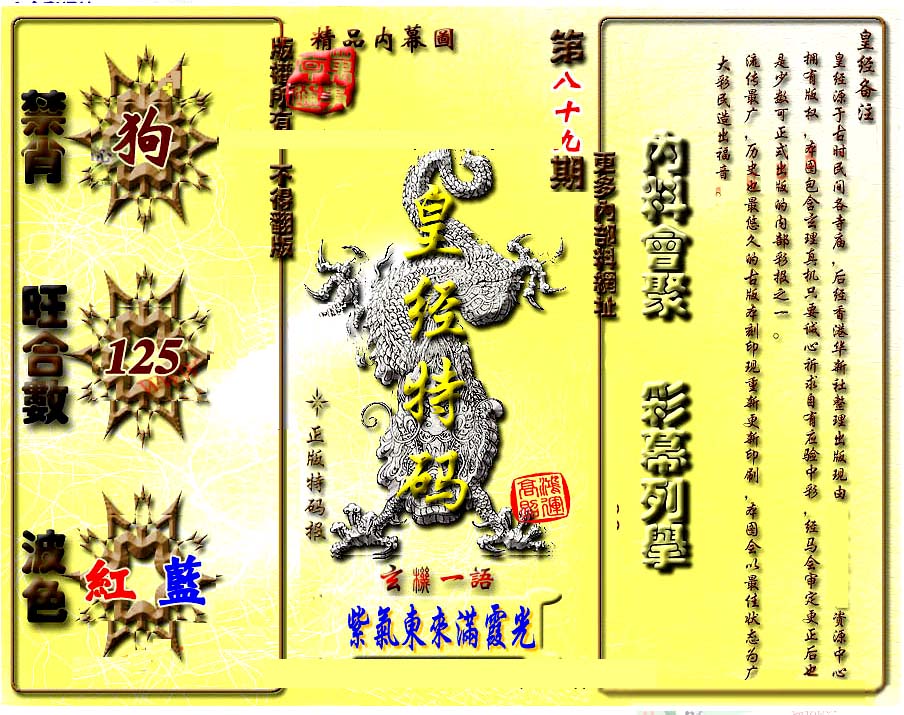 精品内幕圖
第八十九期
版權所有
不得翻版
禁肖
狗
旺合數
125
波色
紅 藍
皇经特码
正版特码报
鴻運高照
玄機一語
紫氣東來滿霞光
更多內部料網址
內料會聚
彩幕列舉
皇经备注
皇经源于古时民间各寺庙，后经香港华新社整理出版现由 资源中心
拥有版权，本图包含玄理真机只要诚心祈求自有应验中彩，经马会审定更正后也
是少数可正式出版的内部彩报之一。
流传最广，历史也最悠久的古版本刻印现重新更新印刷，本图会以最佳状态为广
大彩民造出福音。